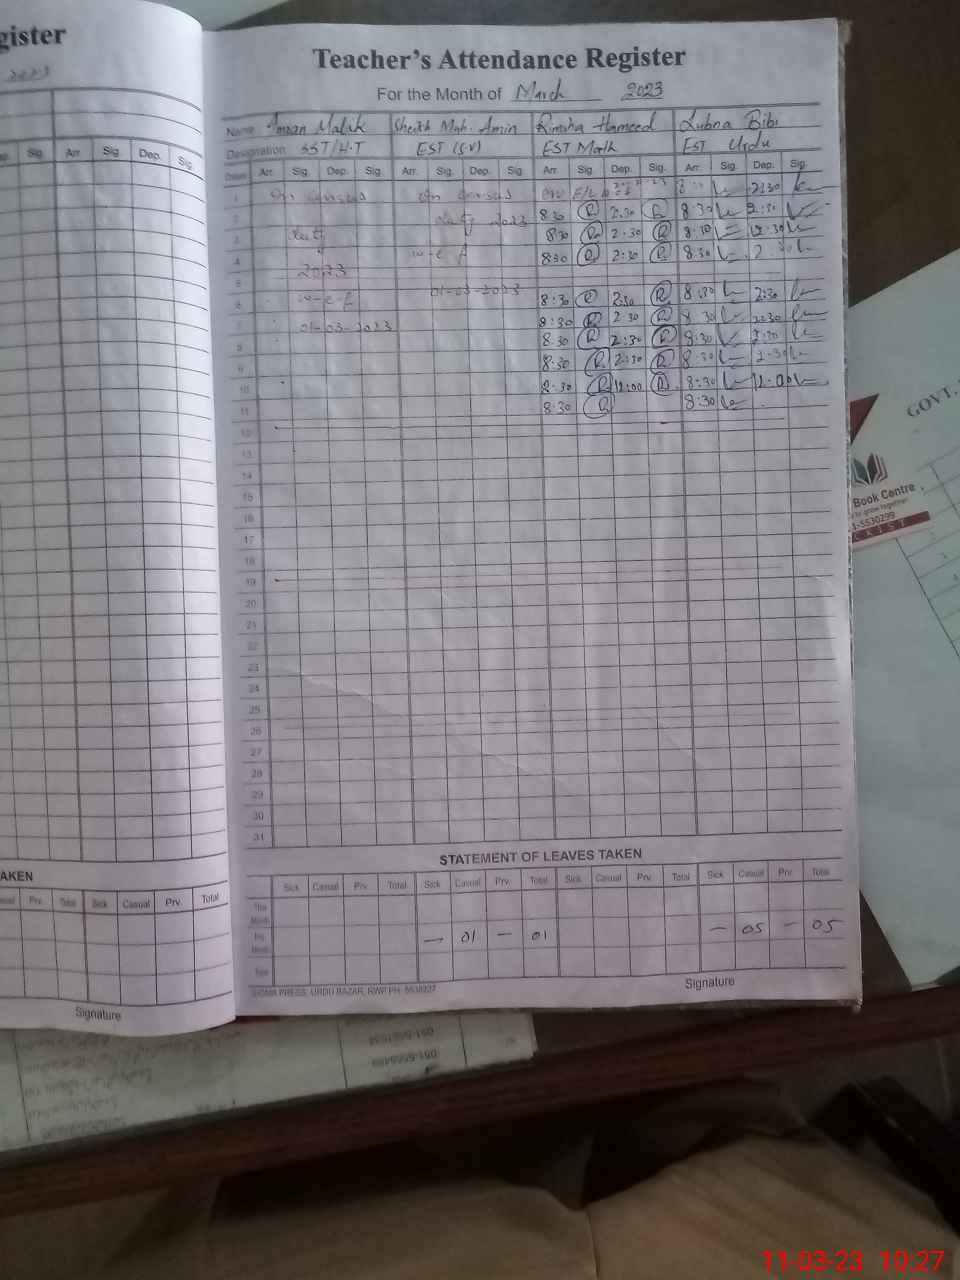 gister
2023
Teacher's Attendance Register
For the Month of March 2023
Name Malik Sheikh Muh. Amin Rimsha Hameed Lubna Bibi
Designation SST/H.T EST (S.V) EST Math EST Urdu
Sig. Arr. Sig. Dep. Sig.
Dates Arr. Sig. Dep. Sig. Arr. Sig. Dep. Sig. Arr. Sig. Dep. Sig. Arr. Sig. Dep. Sig.
1 On census On census 2:30
2 duty 2023 8:30 R 2:30 R 8:30 2:30
3 duty 8:30 R 2:30 R 8:30 12:30
4 w-e-f 8:30 R 2:30 R 8:30 2:30
5 2023
6 w-e-f 01-03-2023 8:30 R 2:30 R 8:30 2:30
7 01-03-2023 8:30 R 2:30 R 8:30 2:30
8 8:30 R 2:30 R 8:30 2:30
9 8:30 R 2:30 R 8:30 2:30
10 8:30 R 12:00 R 8:30 12:00
11 8:30 R 8:30
12
13
14
15
16
17
18
19
20
21
22
23
24
25
26
27
28
29
30
31
STATEMENT OF LEAVES TAKEN
Sick Casual Prv. Total Sick Casual Prv. Total Sick Casual Prv. Total Sick Casual Prv. Total
This Month
Month — 01 — 01 — 05 — 05
Total
SIGMA PRESS, URDU BAZAR, RWP PH: 5530227
Signature
AKEN
Prv. Total Sick Casual Prv. Total
Signature
GOVT.
Book Centre
to grow together
1-5530299
CKIST
11-03-23 10:27